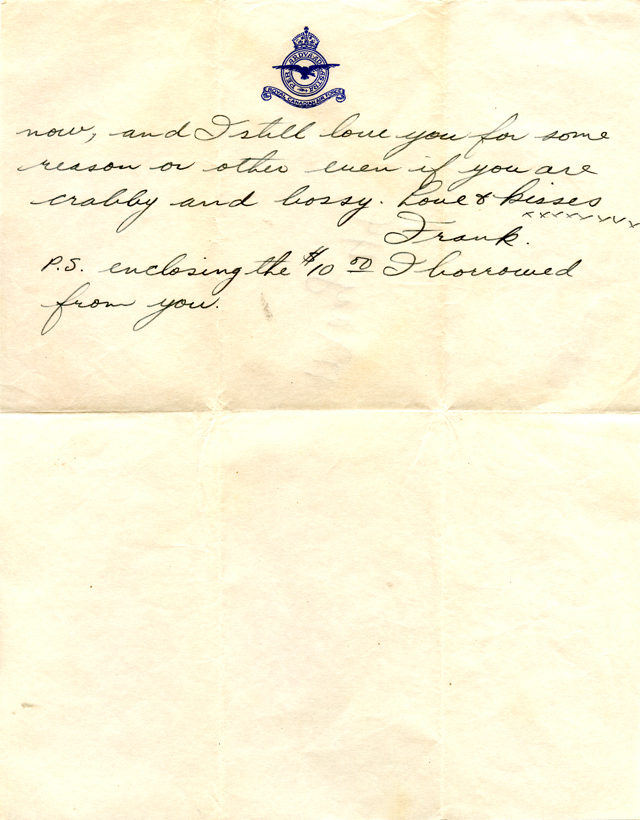 PER ARDVA AD ASTRA
ROYAL CANADIAN AIR FORCE
now, and I still love you for some
reason or other even if you are
crabby and bossy. Love & kisses
xxxxxxxx
Frank.
P.S. enclosing the $10 00 I borrowed
from you.